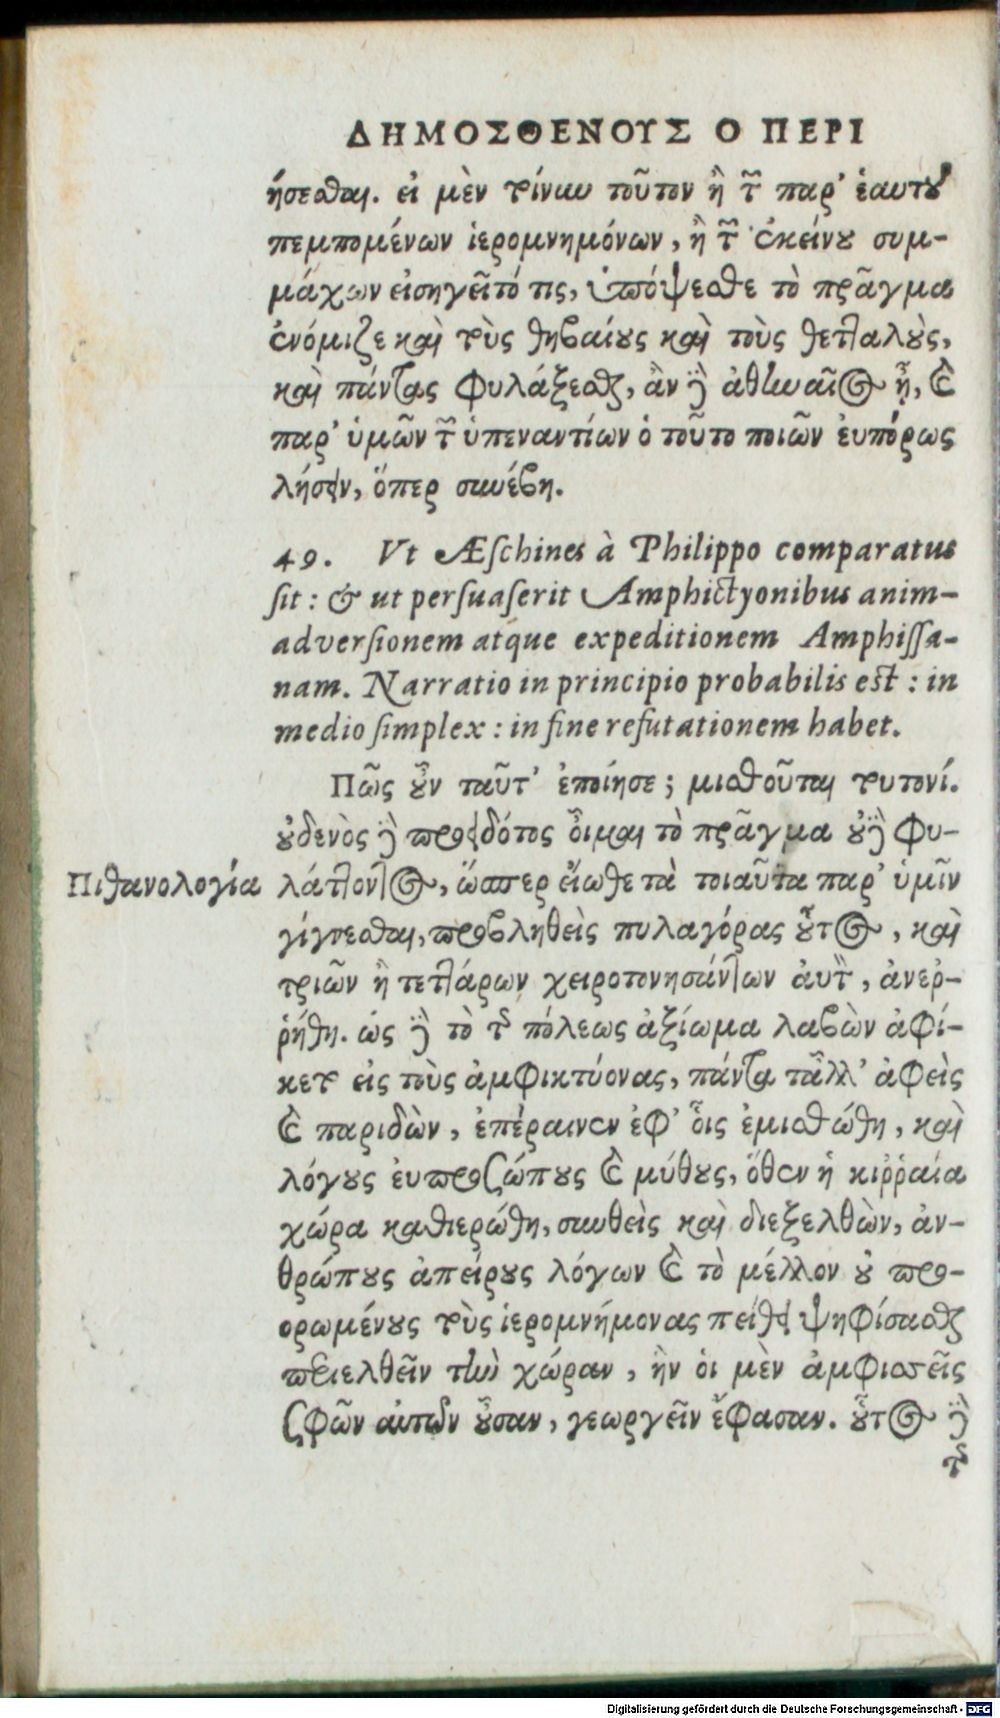 ΔΗΜΟΣΘΕΝΟΥΣ Ο ΠΕΡΙ
ήσεσθαι. εἰ μὲν τοίνυν τοῦτον ἢ τῶν παρ' ἑαυτοῦ
πεμπομένων ἱερομνημόνων, ἢ τῶν ἐκείνου συμ-
μάχων εἰσηγεῖτό τις, ὑπόψεσθε τὸ πρᾶγμα
ἐνόμιζε καὶ τοὺς θηβαίους καὶ τοὺς θετταλοὺς,
καὶ πάντας φυλάξεσθαι, ἂν δὲ ἀθηναῖος ᾖ, καὶ
παρ' ὑμῶν τῶν ὑπεναντίων ὁ τοῦτο ποιῶν ἐυπόρως
λήσειν, ὅπερ συνέβη.
49. Vt Æſchines à Philippo comparatus
ſit : & ut perſuaſerit Amphictyonibus anim-
adverſionem atque expeditionem Amphiſſa-
nam. Narratio in principio probabilis est : in
medio ſimplex : in fine refutationem habet.
Πῶς οὖν ταῦτ' ἐποίησε; μισθοῦται τουτονί.
οὐδενὸς δὲ προειδότος οἶμαι τὸ πρᾶγμα οὐδὲ φυ-
Πιθανολογία
λάττοντος, ὥσπερ εἴωθε τὰ τοιαῦτα παρ' ὑμῖν
γίγνεσθαι, προβληθεὶς πυλαγόρας οὗτος, καὶ
τριῶν ἢ τεττάρων χειροτονησάντων ἀυτὸν, ἀνερ-
ρήθη. ὡς δὲ τὸ τῆς πόλεως ἀξίωμα λαβὼν ἀφί-
κετο εἰς τοὺς ἀμφικτύονας, πάντα τἆλλ' ἀφεὶς
καὶ παριδὼν, ἐπέραινεν ἐφ' οἷς ἐμισθώθη, καὶ
λόγους ἐυπροσώπους καὶ μύθους, ὅθεν ἡ κιῤῥαία
χώρα καθιερώθη, συνθεὶς καὶ διεξελθὼν, ἀν-
θρώπους ἀπείρους λόγων καὶ τὸ μέλλον οὐ προ-
ορωμένους τοὺς ἱερομνήμονας πείθει ψηφίσασθαι
περιελθεῖν τὴν χώραν, ἣν οἱ μὲν ἀμφισσεῖς
σφῶν αὐτῶν οὖσαν, γεωργεῖν ἔφασαν. οὗτος δὲ
τῆς
Digitalisierung gefördert durch die Deutsche Forschungsgemeinschaft - DFG